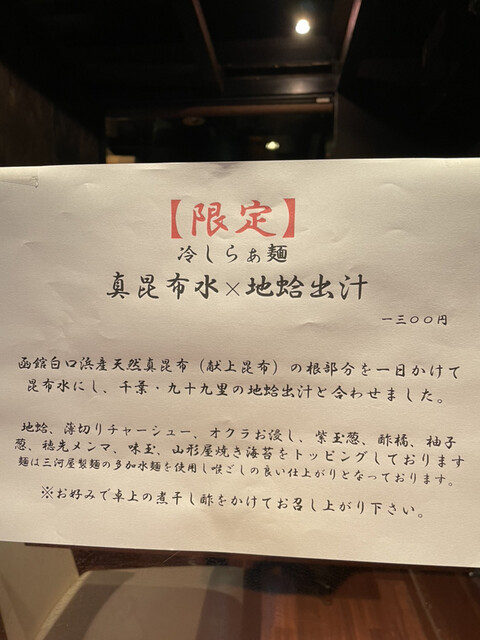 【限定】
冷しらぁ麺
真昆布水×地蛤出汁
一三〇〇円
函館白口浜産天然真昆布(献上昆布)の根部分を一日かけて
昆布水にし、千葉・九十九里の地蛤出汁と合わせました。
地蛤、薄切りチャーシュー、オクラお浸し、紫玉葱、酢橘、柚子
葱、穂先メンマ、味玉、山形屋焼き海苔をトッピングしております
麺は三河屋製麺の多加水麺を使用し喉ごしの良い仕上がりとなっております。
※お好みで卓上の煮干し酢をかけてお召し上がり下さい。